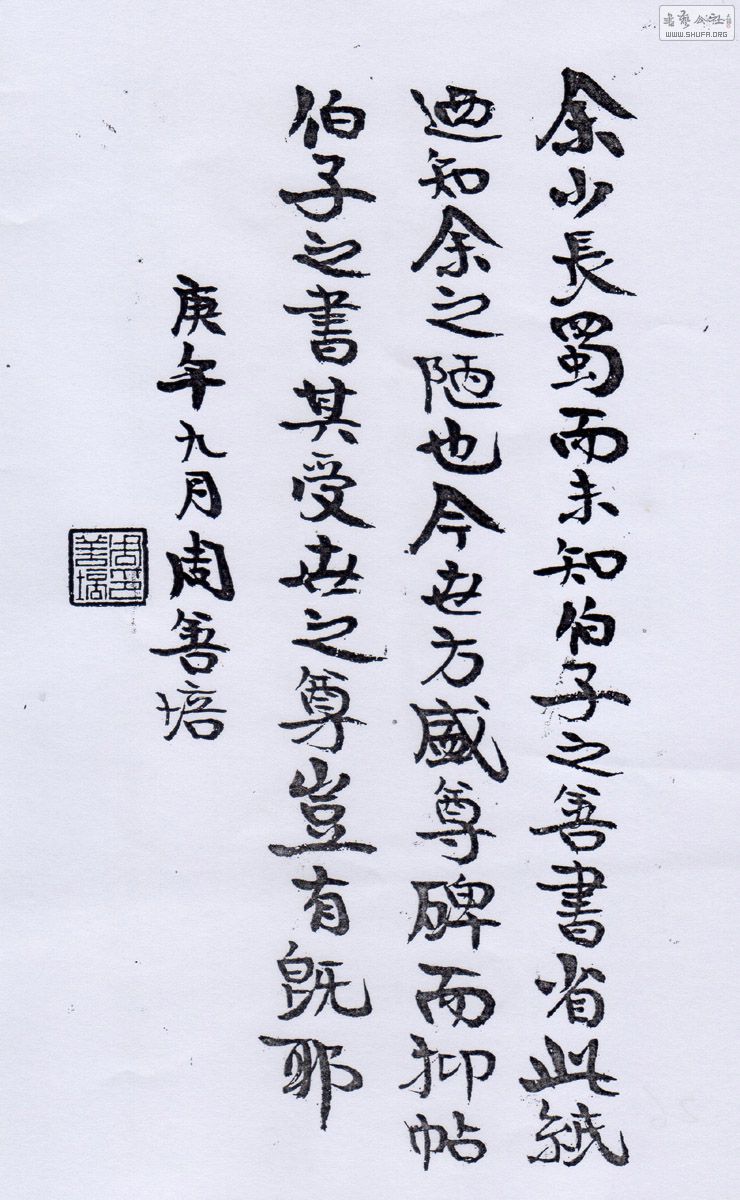 余少長蜀而未知伯子之善書省此紙
迺知余之陋也今世方盛尊碑而抑帖
伯子之書其受世之尊豈有既耶
庚午九月周善培
周善培
WWW.SHUFA.ORG